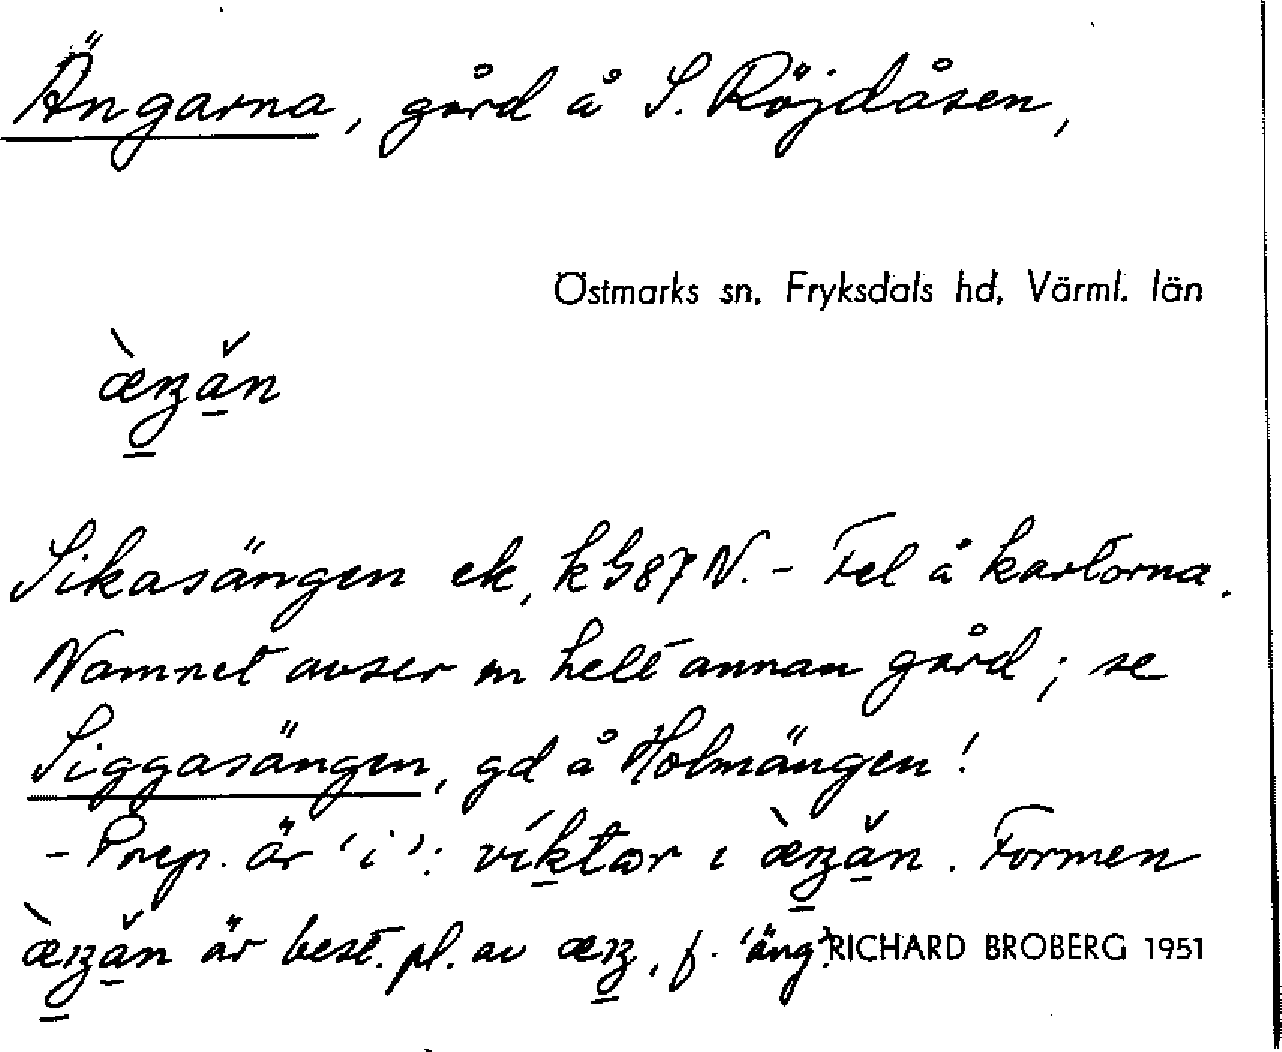 Ängarna, gård å S. Röjdåsen,
Östmarks sn. Fryksdals hd, Värml. län
Sikasängen ek, k G87 N. - Fel å kartorna.
Namnet avser en helt annan gård; se
Siggasängen, gd å Holmängen!
- Prep. är 'i': . Formen
är best. pl. av , f. 'äng'. RICHARD BROBERG 1951